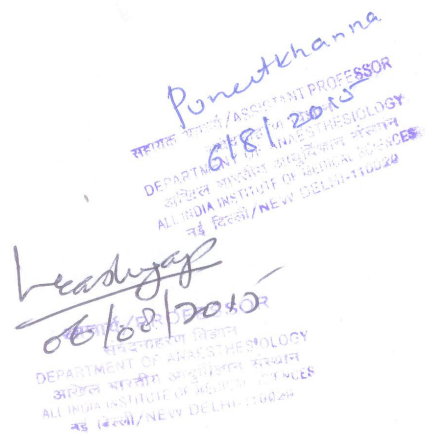 Puneetkhanna
सहायक आचार्य/ASSISTANT PROFESSOR
6/8/2015
DEPARTMENT OF ANAESTHESIOLOGY
अखिल भारतीय आयुर्विज्ञान संस्थान
ALL INDIA INSTITUTE OF MEDICAL SCIENCES
नई दिल्ली/NEW DELHI-110029
06/08/2015
आचार्य/PROFESSOR
संवेदनाहरण विज्ञान
DEPARTMENT OF ANAESTHESIOLOGY
अखिल भारतीय आयुर्विज्ञान संस्थान
ALL INDIA INSTITUTE OF MEDICAL SCIENCES
नई दिल्ली/NEW DELHI-110029